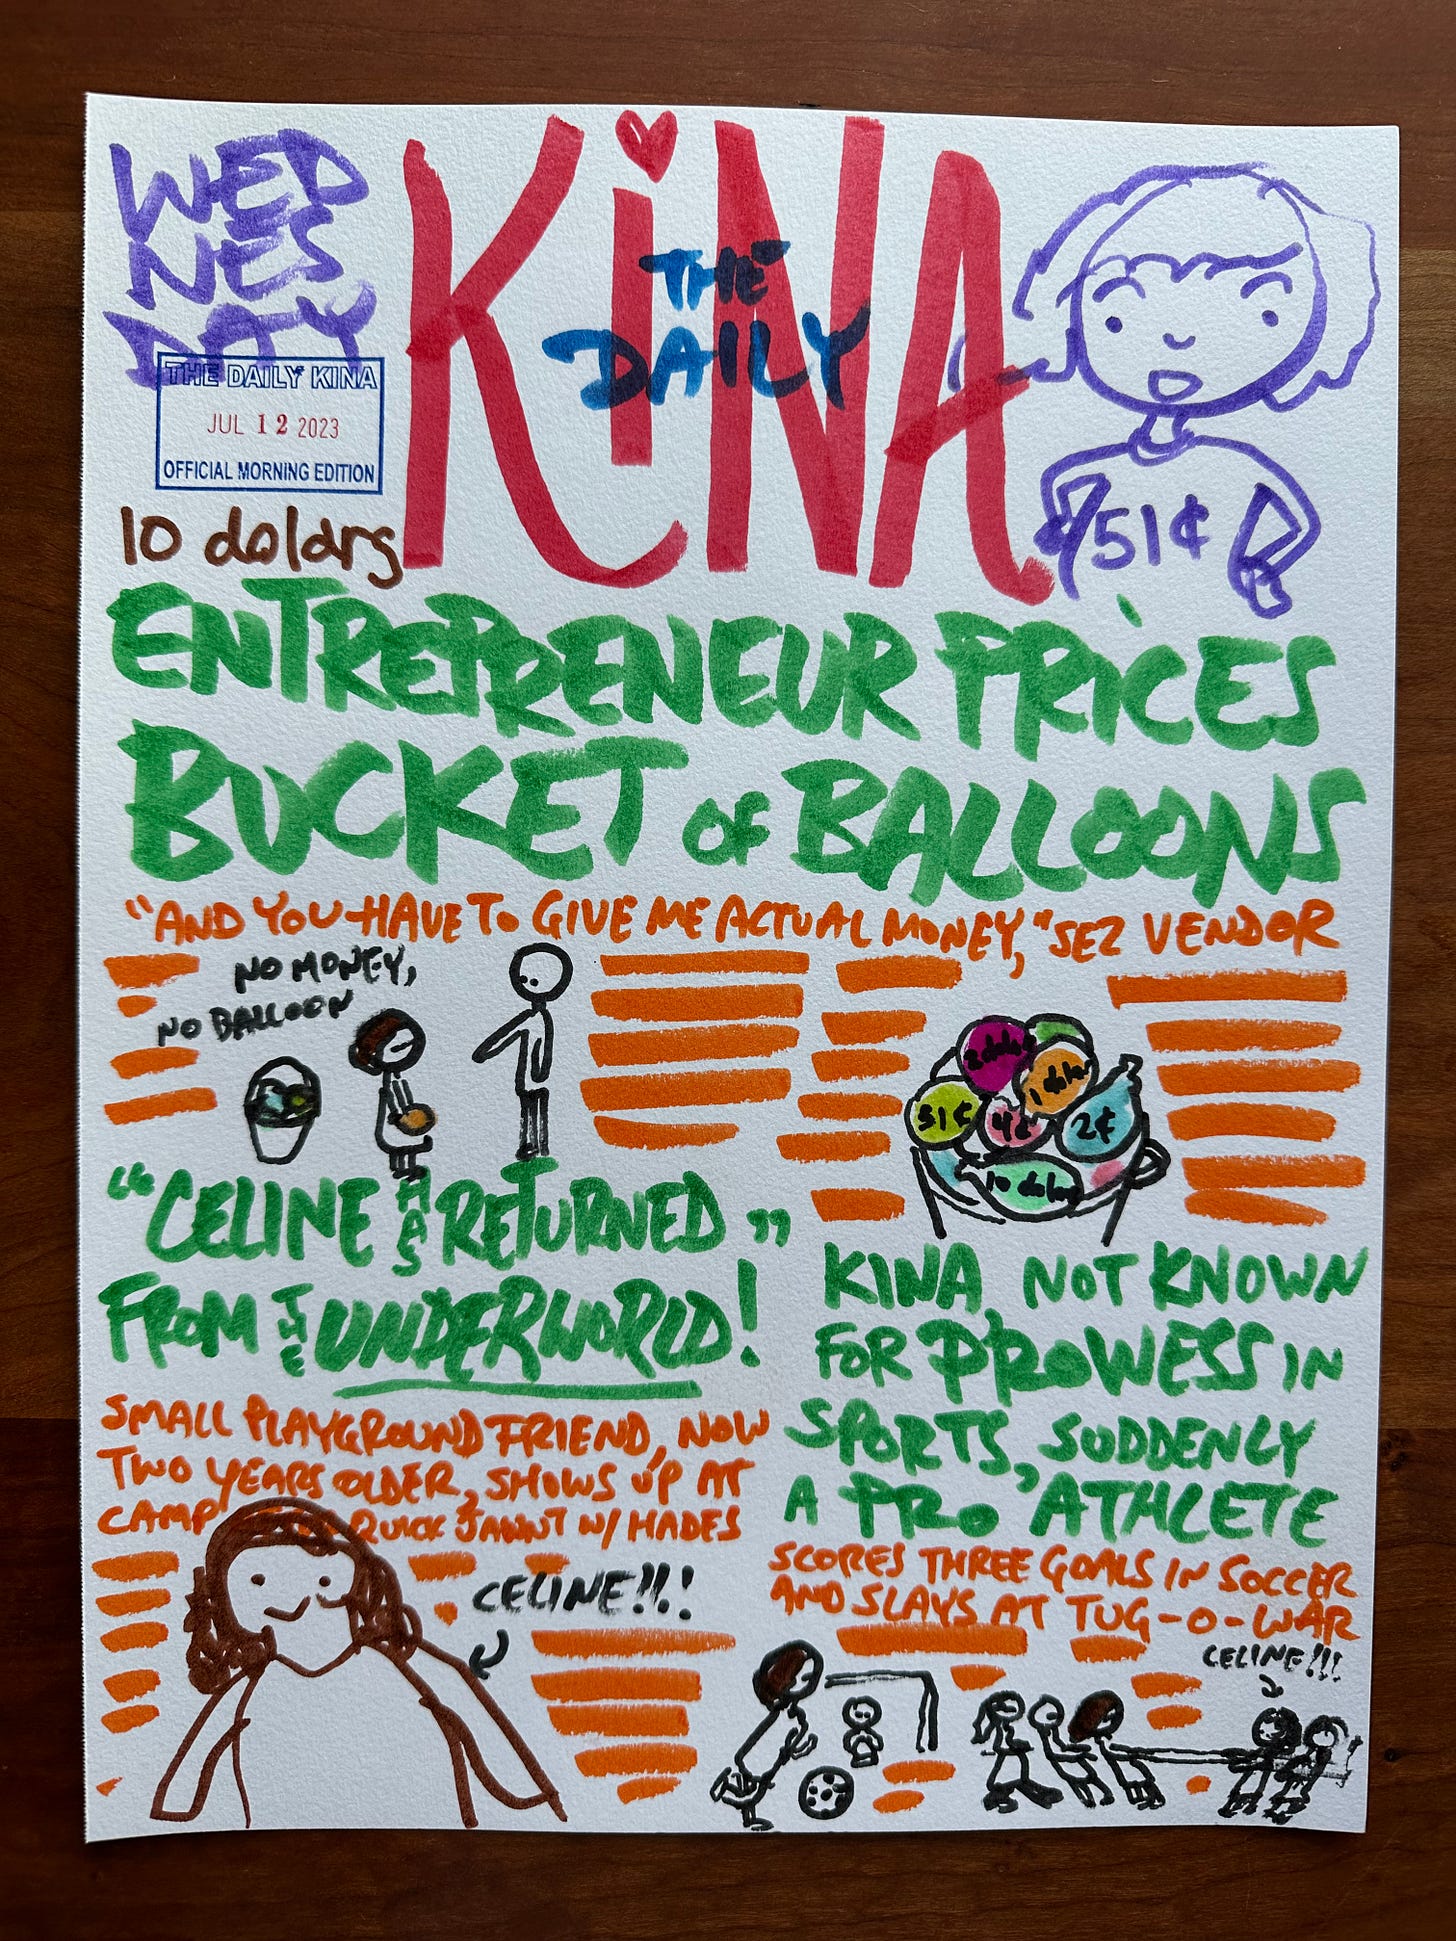 WED
NES
DAY
KiNA
THE
DAILY
THE DAILY KINA
JUL 12 2023
OFFICIAL MORNING EDITION
10 dolars
51¢
ENTREPRENEUR PRiCES
BUCKET OF BALLOONS
"AND YOU HAVE TO GIVE ME ACTUAL MONEY," SEZ VENDOR
NO MONEY,
NO BALLOON
2 dola
1 dolar
51¢
4¢
2¢
10 dolar
"CELINE HAS RETURNED"
FROM THE UNDERWORLD!
SMALL PLAYGROUND FRIEND, NOW
TWO YEARS OLDER, SHOWS UP AT
CAMP QUICK JAUNT W/ HADES
CELINE!!!
KINA, NOT KNOWN
FOR PROWESS IN
SPORTS, SUDDENLY
A PRO ATHLETE
SCORES THREE GOALS IN SOCCER
AND SLAYS AT TUG-O-WAR
CELINE!!!